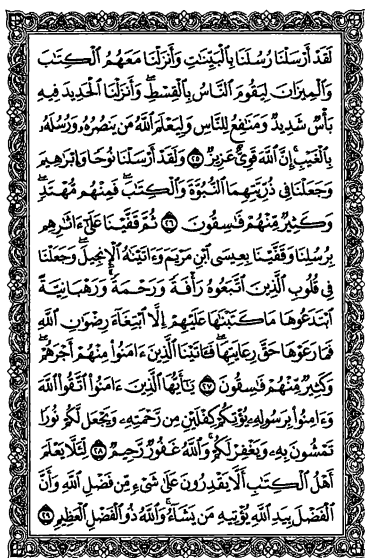 لَقَدْ أَرْسَلْنَا رُسُلَنَا بِالْبَيِّنَٰتِ وَأَنزَلْنَا مَعَهُمُ الْكِتَٰبَ
وَالْمِيزَانَ لِيَقُومَ النَّاسُ بِالْقِسْطِ ۖ وَأَنزَلْنَا الْحَدِيدَ فِيهِ
بَأْسٌ شَدِيدٌ وَمَنَٰفِعُ لِلنَّاسِ وَلِيَعْلَمَ اللَّهُ مَن يَنصُرُهُۥ وَرُسُلَهُۥ
بِالْغَيْبِ ۚ إِنَّ اللَّهَ قَوِيٌّ عَزِيزٌ ٢٥ وَلَقَدْ أَرْسَلْنَا نُوحًا وَإِبْرَٰهِيمَ
وَجَعَلْنَا فِي ذُرِّيَّتِهِمَا النُّبُوَّةَ وَالْكِتَٰبَ ۖ فَمِنْهُم مُّهْتَدٍ ۖ
وَكَثِيرٌ مِّنْهُمْ فَٰسِقُونَ ٢٦ ثُمَّ قَفَّيْنَا عَلَىٰٓ ءَاثَٰرِهِم
بِرُسُلِنَا وَقَفَّيْنَا بِعِيسَى ابْنِ مَرْيَمَ وَءَاتَيْنَٰهُ الْإِنجِيلَ ۖ وَجَعَلْنَا
فِي قُلُوبِ الَّذِينَ اتَّبَعُوهُ رَأْفَةً وَرَحْمَةً وَرَهْبَانِيَّةً
ابْتَدَعُوهَا مَا كَتَبْنَٰهَا عَلَيْهِمْ إِلَّا ابْتِغَآءَ رِضْوَٰنِ اللَّهِ
فَمَا رَعَوْهَا حَقَّ رِعَايَتِهَا ۖ فَـَٔاتَيْنَا الَّذِينَ ءَامَنُوا۟ مِنْهُمْ أَجْرَهُمْ ۖ
وَكَثِيرٌ مِّنْهُمْ فَٰسِقُونَ ٢٧ يَٰٓأَيُّهَا الَّذِينَ ءَامَنُوا۟ اتَّقُوا۟ اللَّهَ
وَءَامِنُوا۟ بِرَسُولِهِۦ يُؤْتِكُمْ كِفْلَيْنِ مِن رَّحْمَتِهِۦ وَيَجْعَل لَّكُمْ نُورًا
تَمْشُونَ بِهِۦ وَيَغْفِرْ لَكُمْ ۚ وَاللَّهُ غَفُورٌ رَّحِيمٌ ٢٨ لِّئَلَّا يَعْلَمَ
أَهْلُ الْكِتَٰبِ أَلَّا يَقْدِرُونَ عَلَىٰ شَيْءٍ مِّن فَضْلِ اللَّهِ ۙ وَأَنَّ
الْفَضْلَ بِيَدِ اللَّهِ يُؤْتِيهِ مَن يَشَآءُ ۚ وَاللَّهُ ذُو الْفَضْلِ الْعَظِيمِ ٢٩